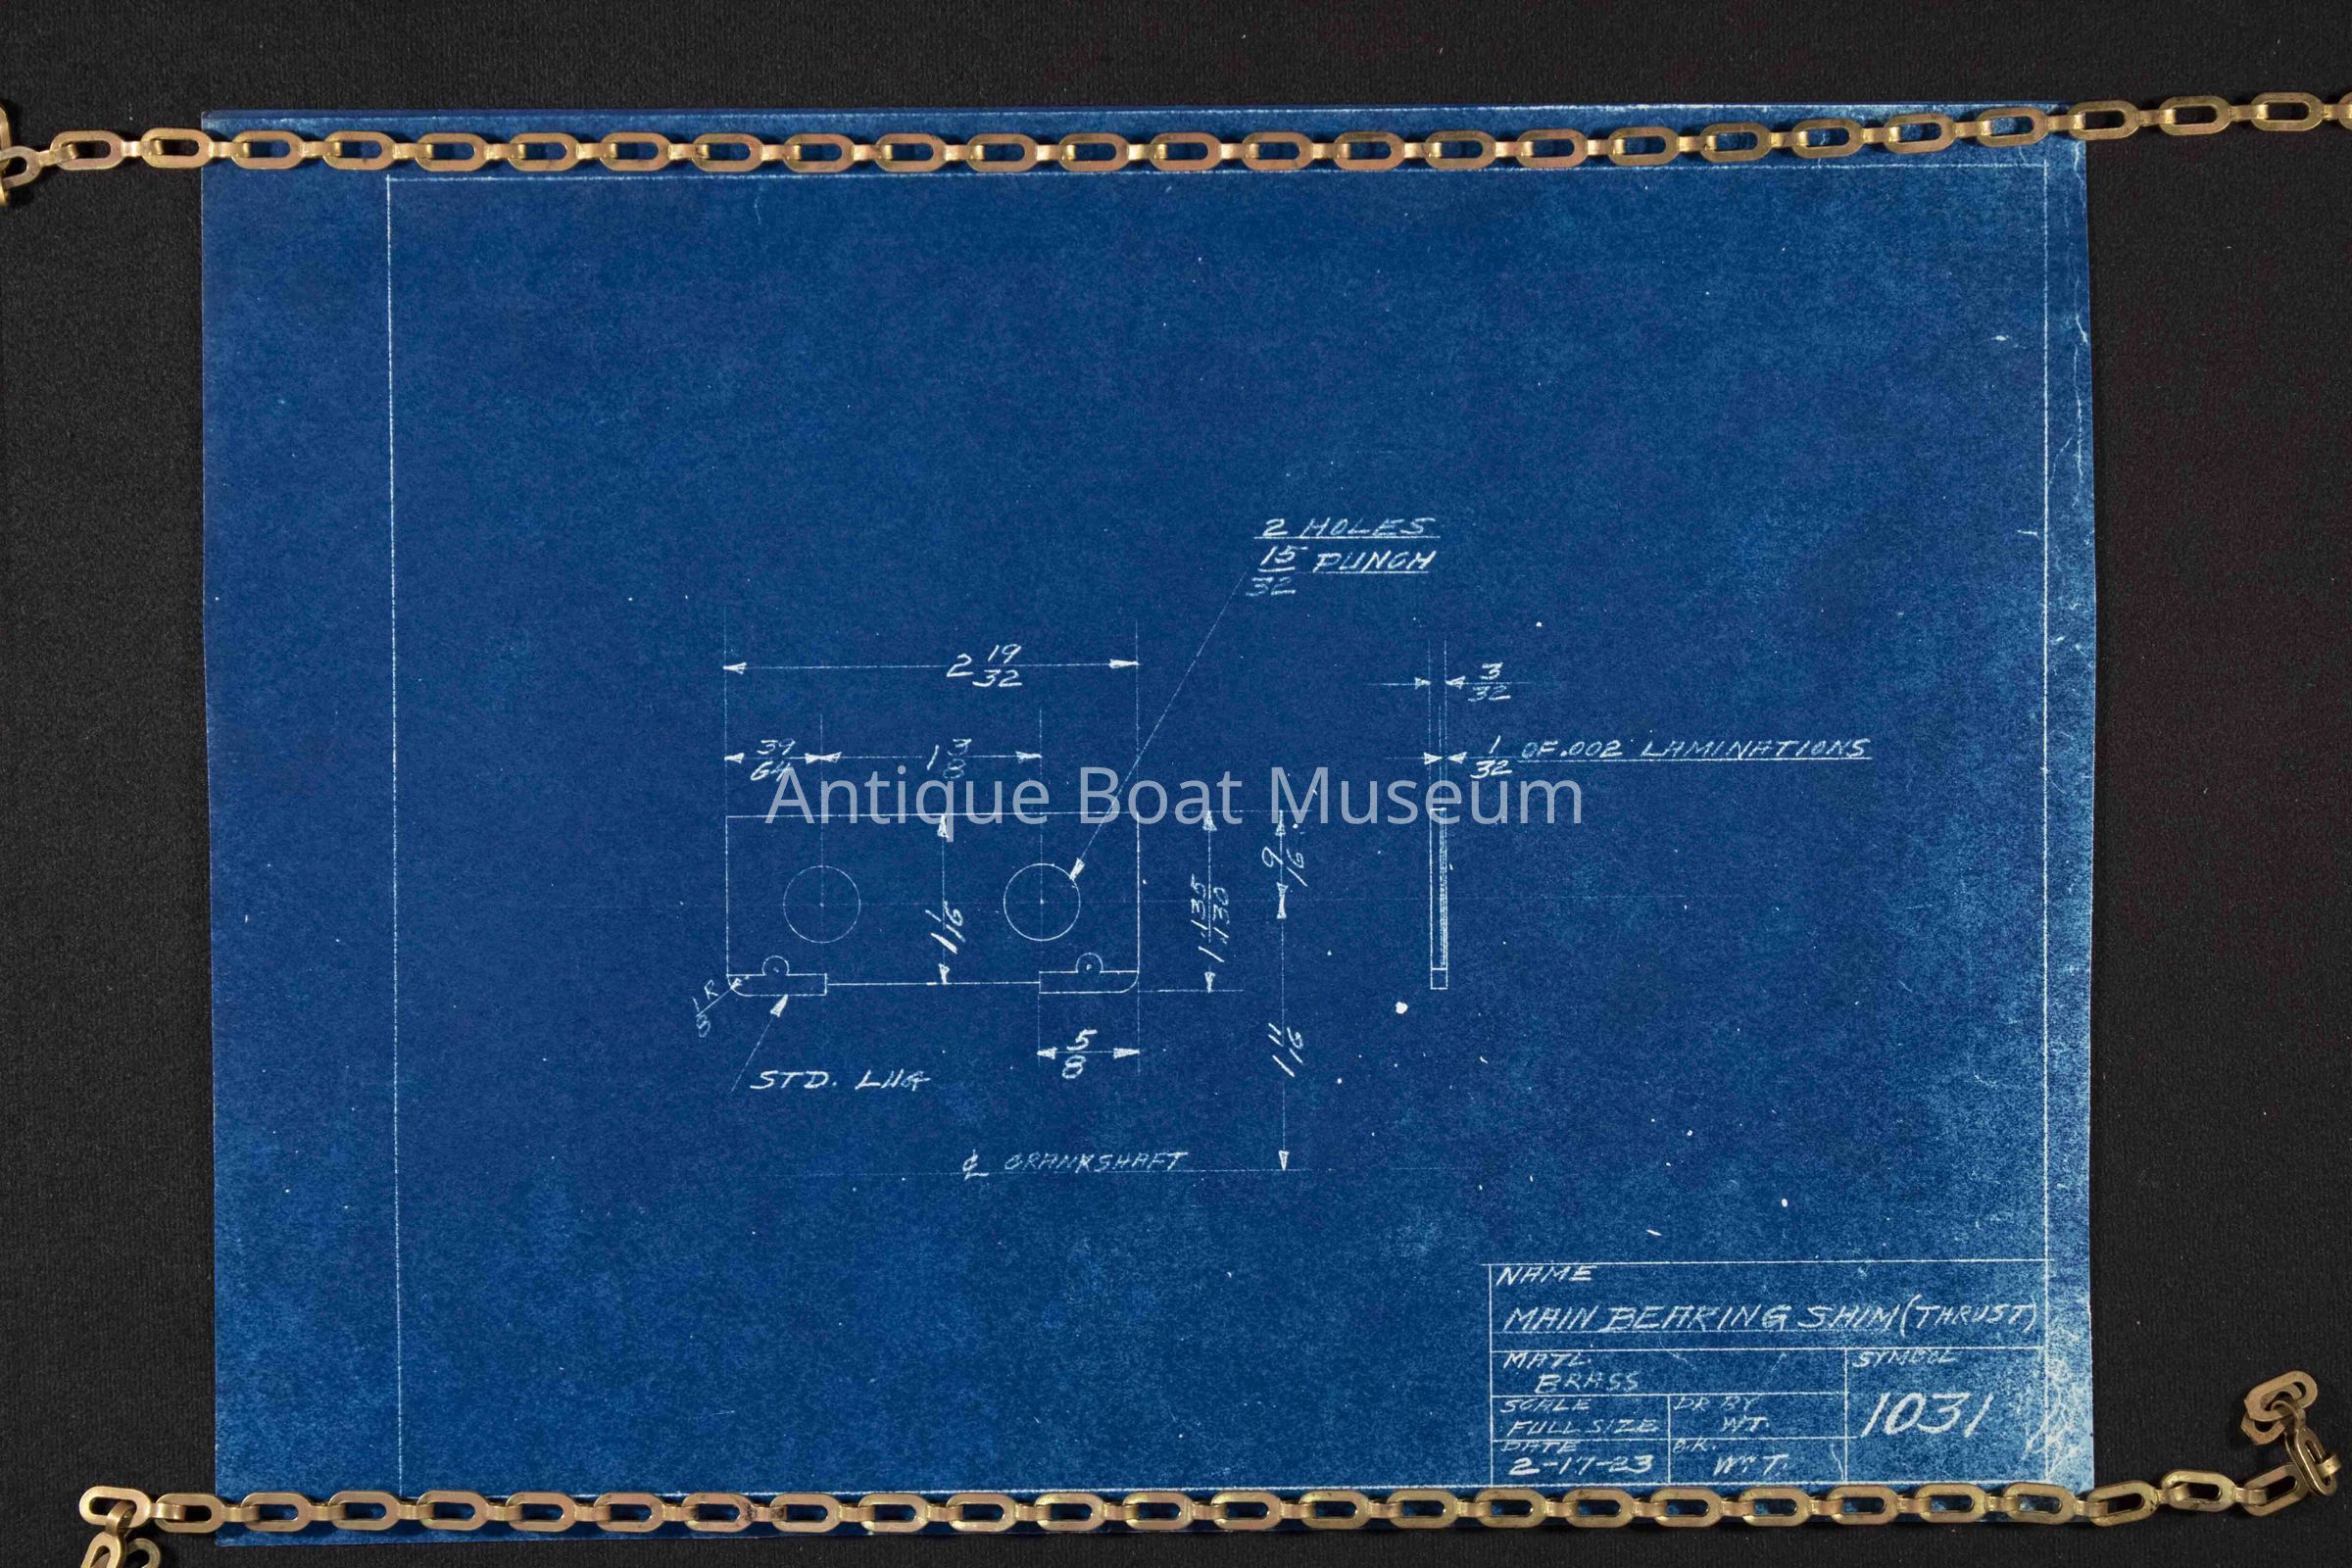 2 HOLES
15/32 PUNCH
2 19/32
3/32
39/64
1 3/8
1/32 OF .002 LAMINATIONS
Antique Boat Museum
9/16
1 1/16
1.135
1.130
1/8 R
5/8
1 11/16
STD. LUG
℄ CRANKSHAFT
NAME
MAIN BEARING SHIM (THRUST)
MATL.
BRASS
SYMBOL
1031
SCALE
FULL SIZE
DR BY
WT.
DATE
2-17-23
O.K.
WmT.